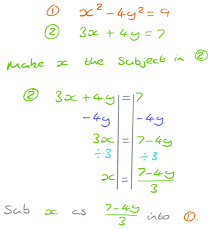 ① x² - 4y² = 9
② 3x + 4y = 7
Make x the subject in ②
② 3x + 4y = 7
-4y -4y
3x = 7-4y
÷3 ÷3
x = 7-4y/3
Sub x as 7-4y/3 into ①.